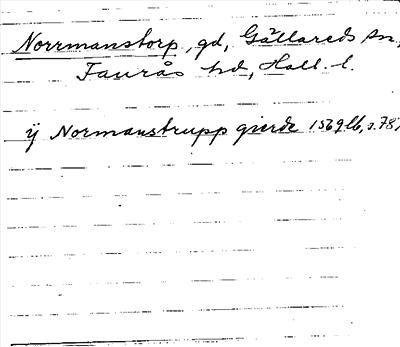 Norrmanstorp, gd, Gällareds sn,
Faurås hd, Hall. l.
ij Normanstrupp gierde 1569 lb, s. 78,